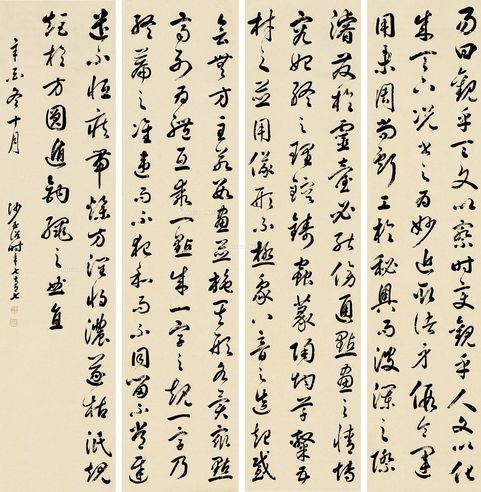 易曰觀乎天文以察時變觀乎人文以化
成天下況書之為妙近取諸身假令運
用未周尚虧工於秘奧而波瀾之際
濬發於靈臺必能傍通點畫之情博
究始終之理鎔鑄蟲篆陶均草隸五
材之並用儀形不極象八音之迭起感
會無方至若數畫並施其形各異衆點
齊列為體互乖一點成一字之規一字乃
終篇之准違而不犯和而不同留不常遲
遣不恆疾帶燥方潤將濃遂枯泯規
矩於方圓遁鉤繩之曲直
辛酉冬十月
沙 時年七十七